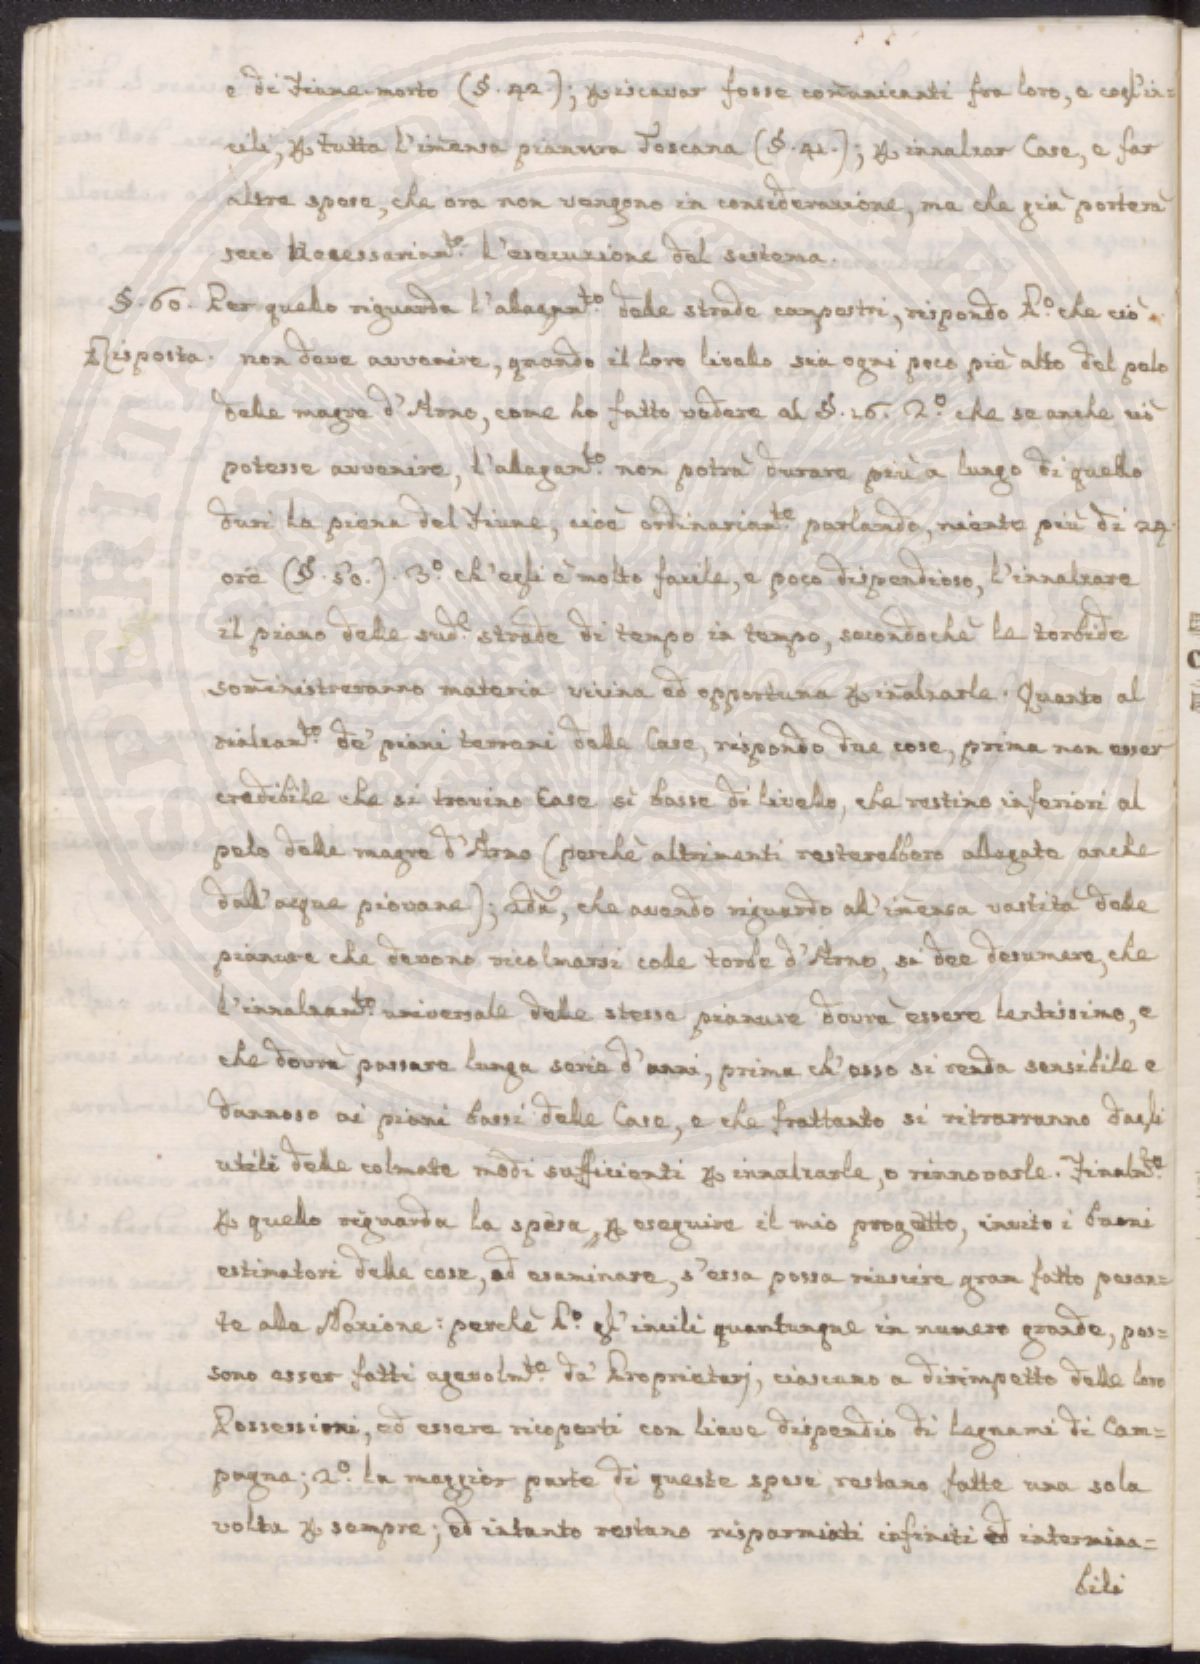 e di Fiume-morto (§. 42.); p iscavar fosse comunicanti fra loro, e cogl'in=
cili, p tutta l'im̃ensa pianura Toscana (§. 41.); p innalzar Case, e far
altre spese, che ora non vengono in considerazione, ma che già porterà
seco Necessariam.te l'esecuzione del sistema.
§. 60. Per quello riguarda l'allagam.to delle strade campestri, rispondo P.o che ciò
Risposta. non deve avvenire, quando il loro livello sia ogni poco più alto del pelo
delle magre d'Arno, come ho fatto vedere al §. 16. 2.o che se anche ciò
potesse avvenire, l'allagam.to non potrà durare più a lungo di quello
duri la piena del Fiume, cioè ordinariam.te parlando, niente più di 24
ore (§. 50.). 3.o ch'egli è molto facile, e poco dispendioso, l'innalzare
il piano delle sud.e strade di tempo in tempo, secondochè le torbide
som̃inistreranno materia vicina ed opportuna p inalzarle. Quanto al
rialzam.to de' piani terreni delle Case, rispondo due cose, prima non esser
credibile che si trovino Case sì basse di livello, che restino inferiori al
pelo delle magre d'Arno (perchè altrimenti resterebbero allagate anche
dall'acque piovane); 2da, che avendo riguardo all'im̃ensa vastità delle
pianure che devono ricolmarsi colle torbe d'Arno, si dee desumere, che
l'innalzam.to universale delle stesse pianure dovrà essere lentissimo, e
che dovrà passare lunga serie d'anni, prima ch'esso si renda sensibile e
dannoso ai piani bassi delle Case, e che frattanto si ritrarranno dagli
utili delle colmate modi sufficienti p innalzarle, o rinnovarle. Finalm.te
p quello riguarda la spesa, p eseguire il mio progetto, invito i buoni
estimatori delle cose, ad esaminare, s'essa possa riuscire gran fatto pesan=
te alla Nazione: perchè P.o gl'incili quantunque in numero grande, pos=
sono esser fatti agevolm.te da' Proprietarj, ciascuno a dirimpetto delle loro
Possessioni, ed essere ricoperti con lieve dispendio di legnami di Cam=
pagna; 2.o la maggior parte di queste spese restano fatte una sola
volta p sempre; ed intanto restano risparmiati infiniti ed intermina=
bili